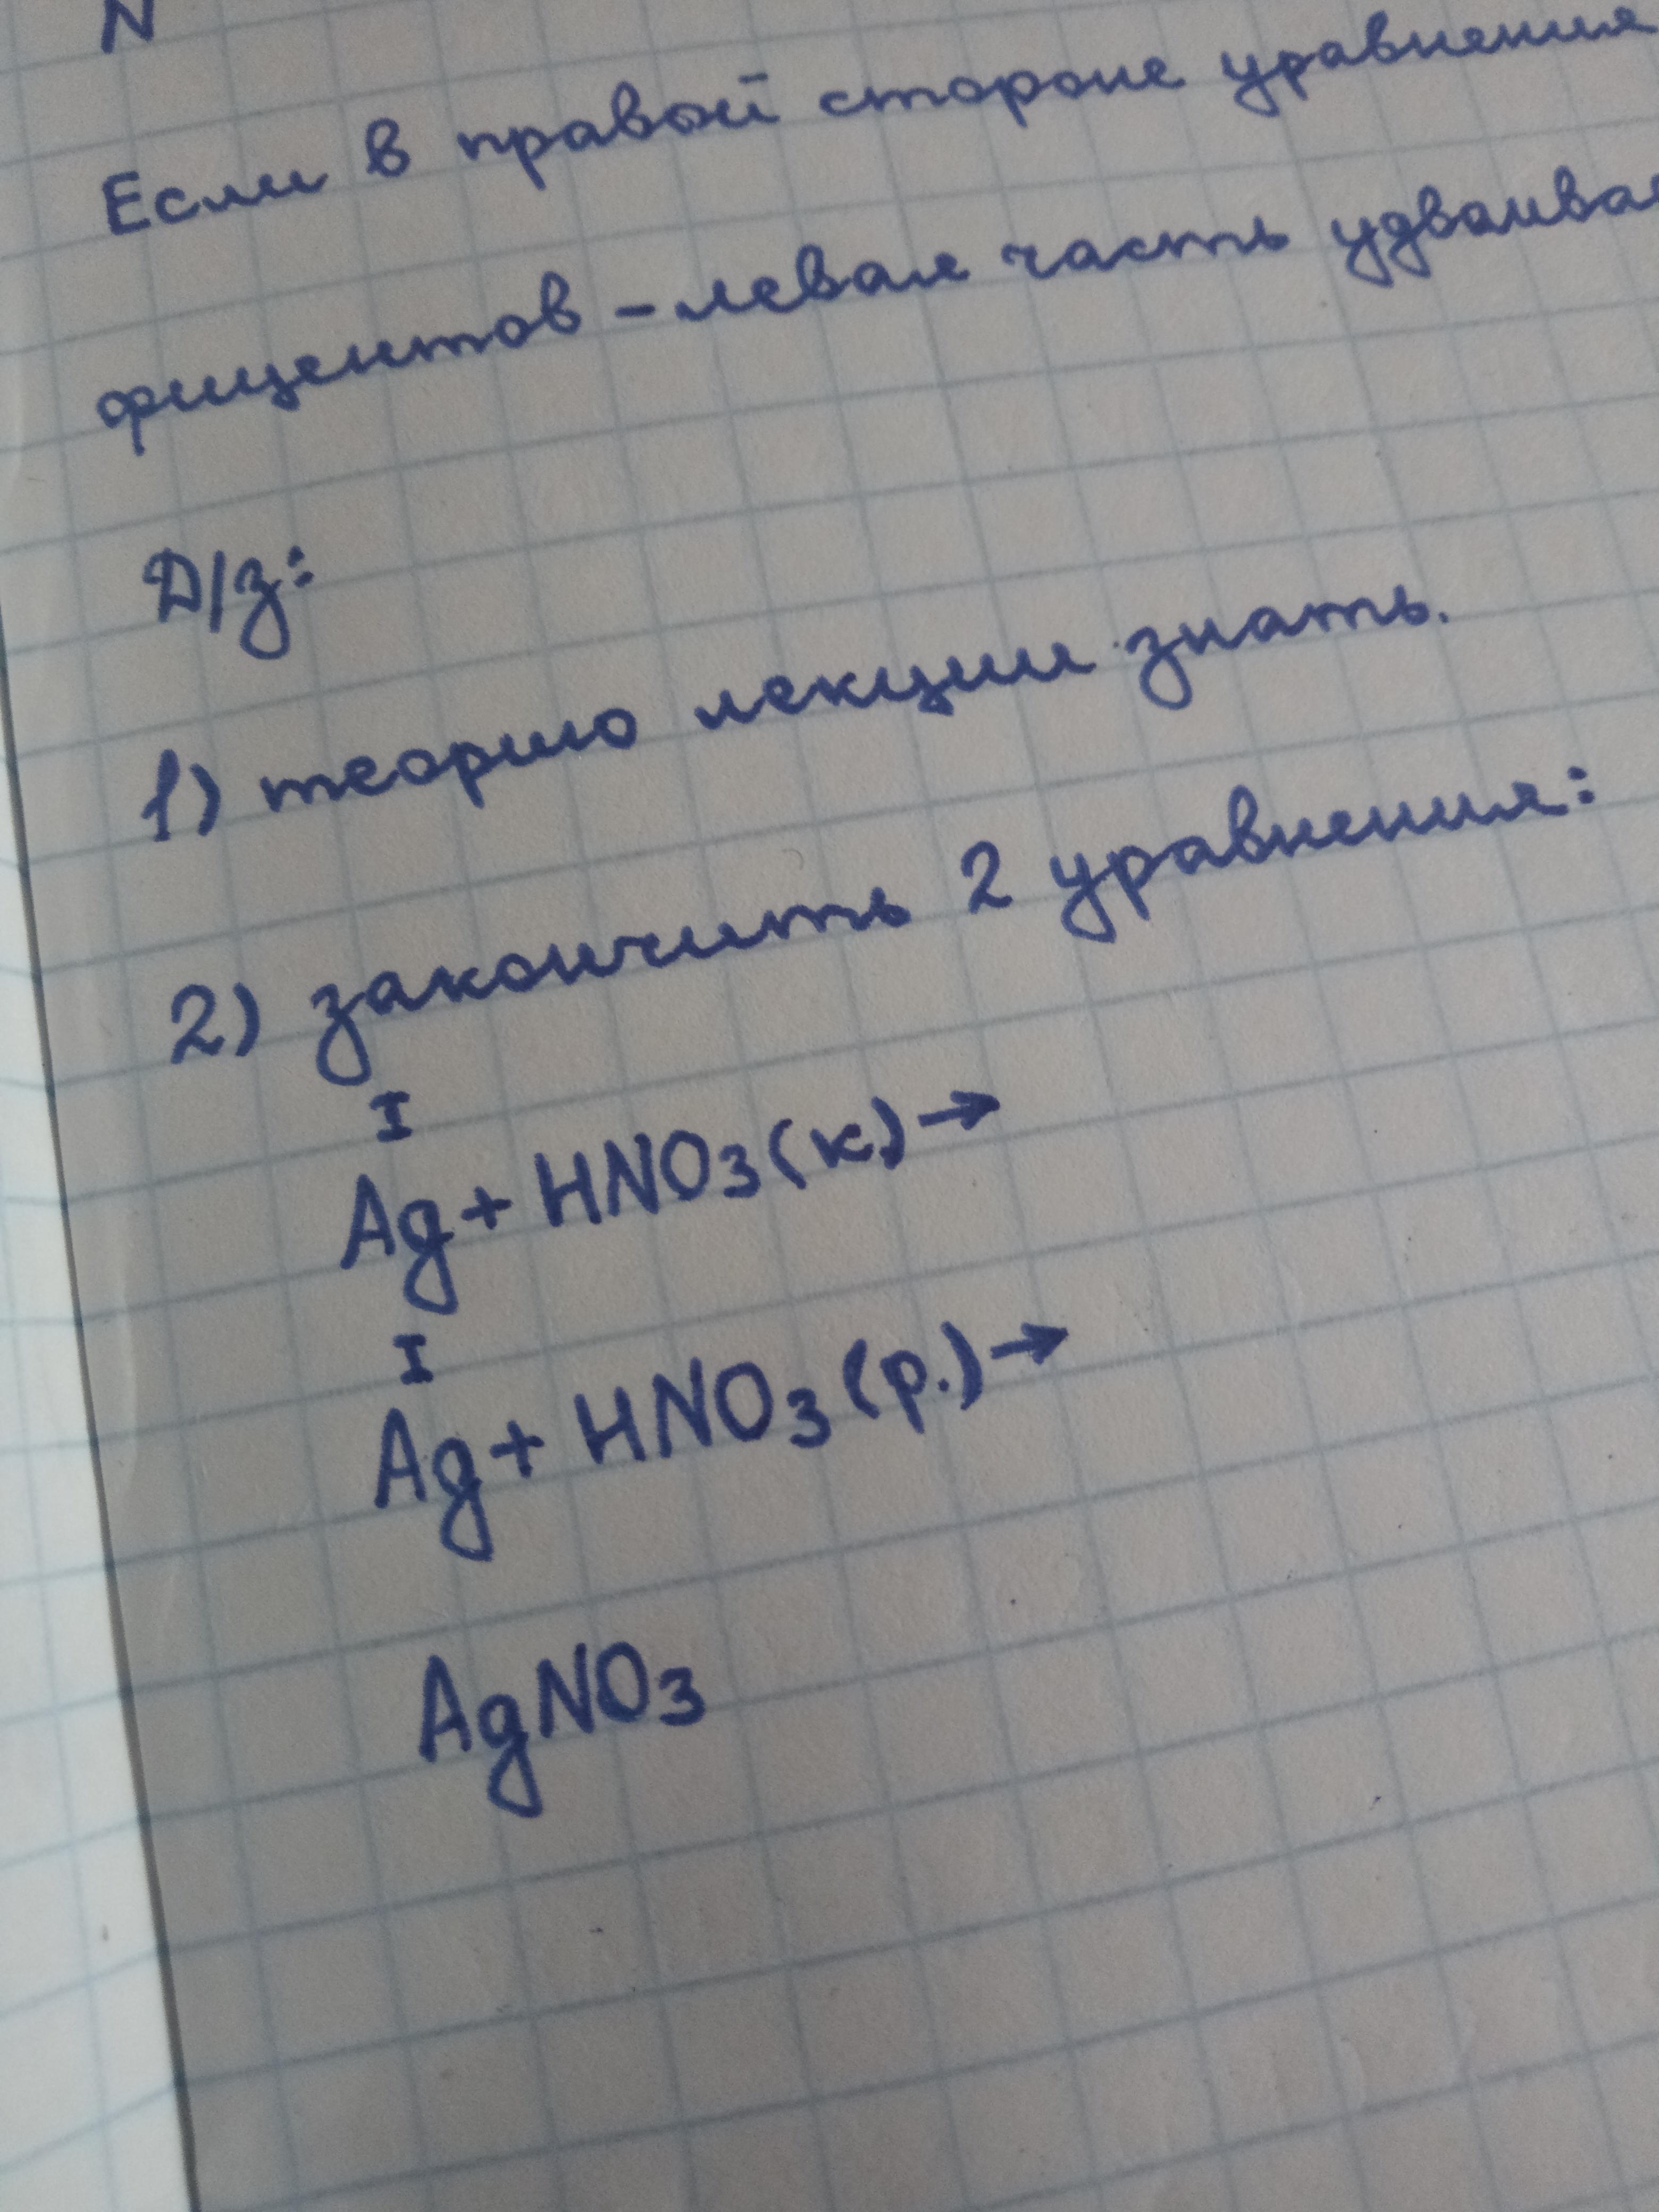 N
Если в правой стороне уравнения
фициентов - левая часть удваива
Д/з:
1) теорию лекции знать.
2) закончить 2 уравнения:
I
Ag + HNO3 (к.) →
I
Ag + HNO3 (р.) →
AgNO3